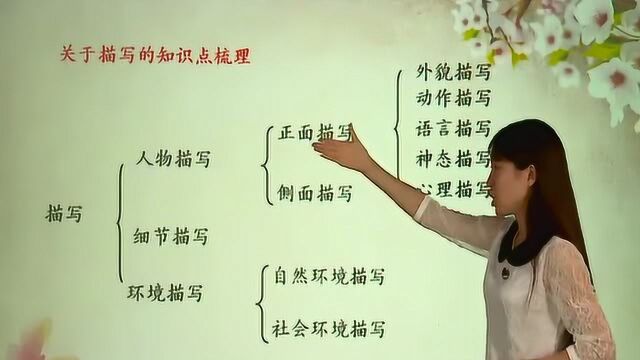 关于描写的知识点梳理
外貌描写
动作描写
正面描写
语言描写
人物描写
神态描写
侧面描写
心理描写
描写
细节描写
自然环境描写
环境描写
社会环境描写